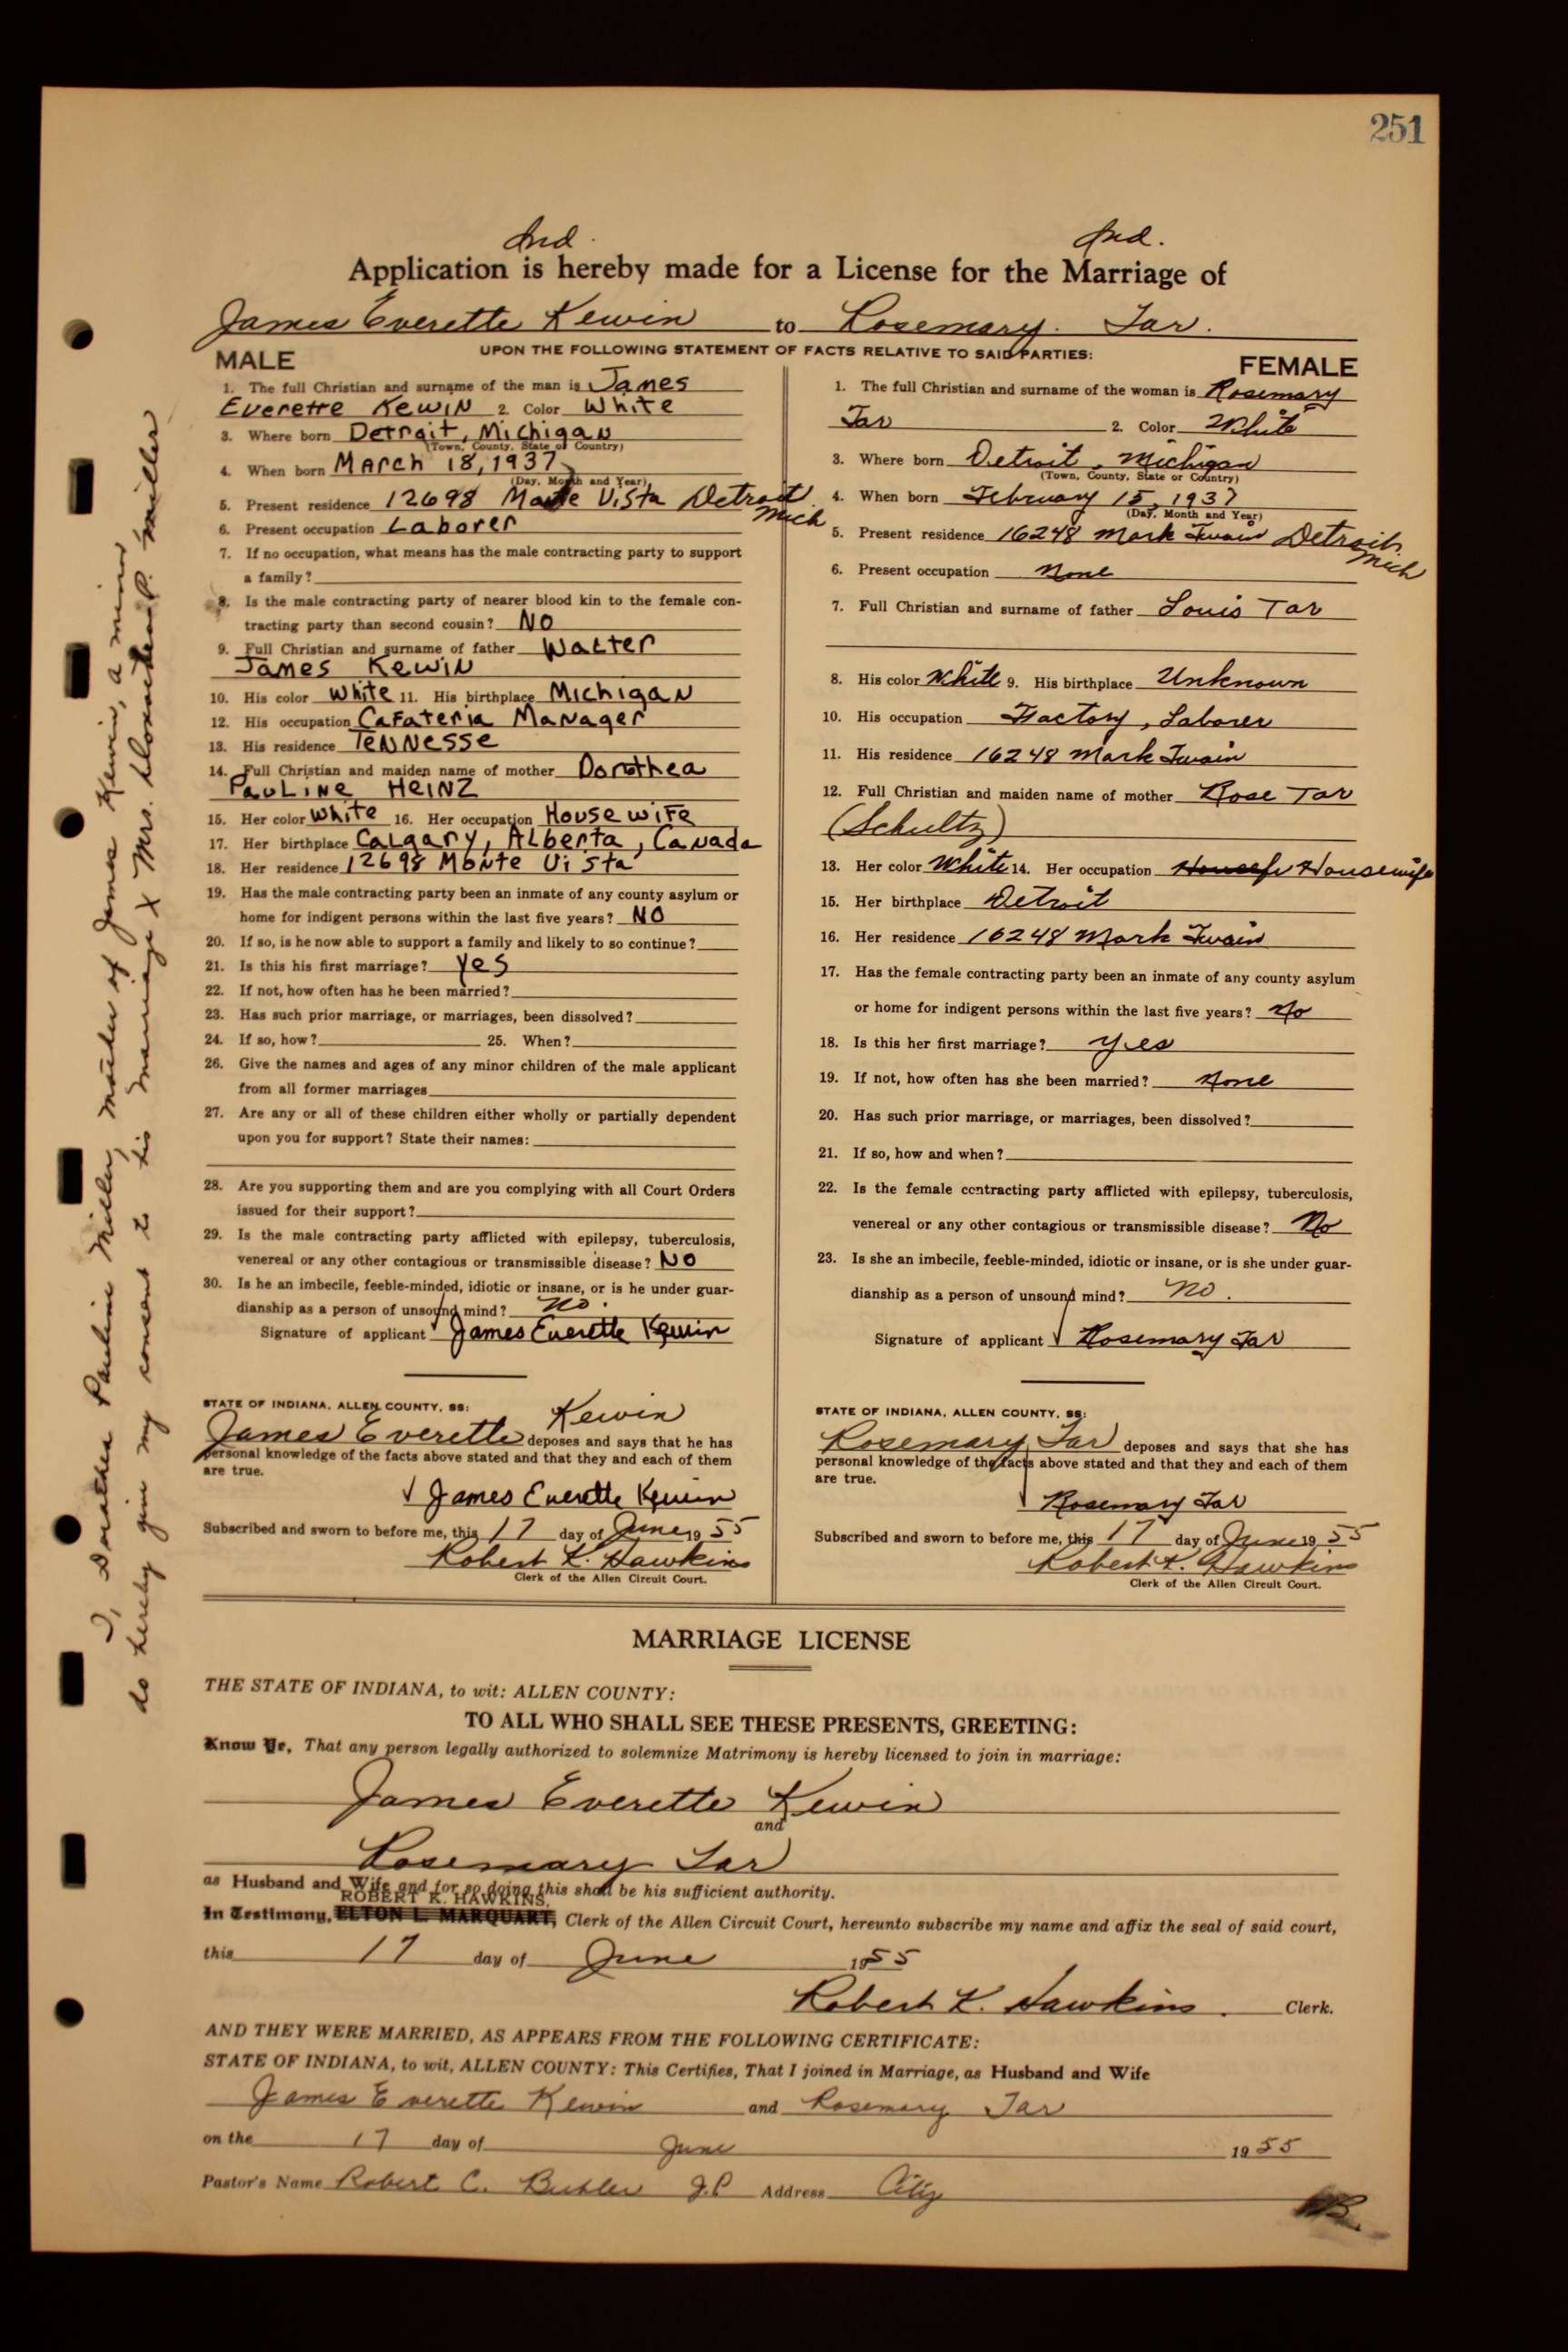 251
Ind. Ind.
Application is hereby made for a License for the Marriage of
James Everette Kewin to Rosemary. Tar.
UPON THE FOLLOWING STATEMENT OF FACTS RELATIVE TO SAID PARTIES:
MALE
1. The full Christian and surname of the man is James
Everette Kewin 2. Color White
3. Where born Detroit, Michigan
(Town, County, State or Country)
4. When born March 18, 1937
(Day, Month and Year)
5. Present residence 12698 Monte Vista Detroit
Mich
6. Present occupation Laborer
7. If no occupation, what means has the male contracting party to support
a family?
8. Is the male contracting party of nearer blood kin to the female con-
tracting party than second cousin? No
9. Full Christian and surname of father Walter
James Kewin
10. His color White 11. His birthplace Michigan
12. His occupation Cafateria Manager
13. His residence Tennesse
14. Full Christian and maiden name of mother Dorothea
Pauline Heinz
15. Her color White 16. Her occupation House wife
17. Her birthplace Calgary, Alberta, Canada
18. Her residence 12698 Monte Vista
19. Has the male contracting party been an inmate of any county asylum or
home for indigent persons within the last five years? No
20. If so, is he now able to support a family and likely to so continue?
21. Is this his first marriage? yes
22. If not, how often has he been married?
23. Has such prior marriage, or marriages, been dissolved?
24. If so, how? 25. When?
26. Give the names and ages of any minor children of the male applicant
from all former marriages
27. Are any or all of these children either wholly or partially dependent
upon you for support? State their names:
28. Are you supporting them and are you complying with all Court Orders
issued for their support?
29. Is the male contracting party afflicted with epilepsy, tuberculosis,
venereal or any other contagious or transmissible disease? No
30. Is he an imbecile, feeble-minded, idiotic or insane, or is he under guar-
dianship as a person of unsound mind? no.
Signature of applicant James Everette Kewin
STATE OF INDIANA, ALLEN COUNTY, SS: Kewin
James Everette deposes and says that he has
personal knowledge of the facts above stated and that they and each of them
are true.
James Everette Kewin
Subscribed and sworn to before me, this 17 day of June 1955
Robert K. Hawkins
Clerk of the Allen Circuit Court.
FEMALE
1. The full Christian and surname of the woman is Rosemary
Tar 2. Color White
3. Where born Detroit, Michigan
(Town, County, State or Country)
4. When born February 15, 1937
(Day, Month and Year)
5. Present residence 16248 Mark Twain Detroit
Mich
6. Present occupation None
7. Full Christian and surname of father Louis Tar
8. His color White 9. His birthplace Unknown
10. His occupation Factory, Laborer
11. His residence 16248 Mark Twain
12. Full Christian and maiden name of mother Rose Tar
(Schultz)
13. Her color White 14. Her occupation Housewife
15. Her birthplace Detroit
16. Her residence 16248 Mark Twain
17. Has the female contracting party been an inmate of any county asylum
or home for indigent persons within the last five years? No
18. Is this her first marriage? yes
19. If not, how often has she been married? None
20. Has such prior marriage, or marriages, been dissolved?
21. If so, how and when?
22. Is the female contracting party afflicted with epilepsy, tuberculosis,
venereal or any other contagious or transmissible disease? No
23. Is she an imbecile, feeble-minded, idiotic or insane, or is she under guar-
dianship as a person of unsound mind? no.
Signature of applicant Rosemary Tar
STATE OF INDIANA, ALLEN COUNTY, SS:
Rosemary Tar deposes and says that she has
personal knowledge of the facts above stated and that they and each of them
are true.
Rosemary Tar
Subscribed and sworn to before me, this 17 day of June 1955
Robert K. Hawkins
Clerk of the Allen Circuit Court.
I, Dorathea Pauline Miller, mother of James Kewin, a minor
do hereby give my consent to his marriage X Mrs. P. Miller
MARRIAGE LICENSE
THE STATE OF INDIANA, to wit: ALLEN COUNTY:
TO ALL WHO SHALL SEE THESE PRESENTS, GREETING:
Know Ye, That any person legally authorized to solemnize Matrimony is hereby licensed to join in marriage:
James Everette Kewin
and
Rosemary Tar
as Husband and Wife and for so doing this shall be his sufficient authority.
ROBERT K. HAWKINS,
In Testimony, ELTON L. MARQUART, Clerk of the Allen Circuit Court, hereunto subscribe my name and affix the seal of said court,
this 17 day of June 1955
Robert K. Hawkins. Clerk.
AND THEY WERE MARRIED, AS APPEARS FROM THE FOLLOWING CERTIFICATE:
STATE OF INDIANA, to wit, ALLEN COUNTY: This Certifies, That I joined in Marriage, as Husband and Wife
James Everette Kewin and Rosemary Tar
on the 17 day of June 1955
Pastor's Name Robert C. Buhler J.P. Address City